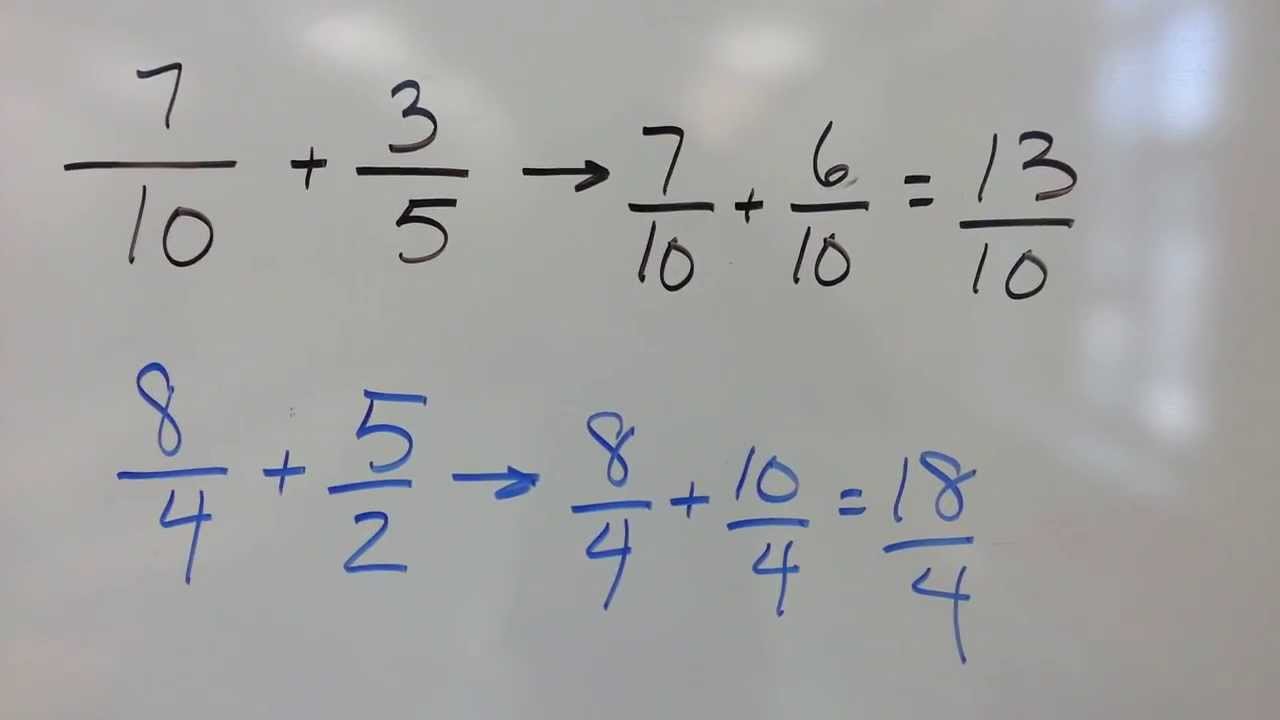 7/10 + 3/5 → 7/10 + 6/10 = 13/10
8/4 + 5/2 → 8/4 + 10/4 = 18/4